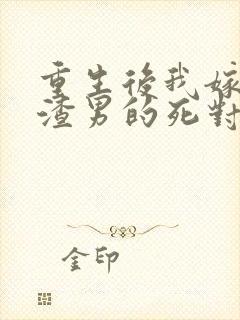 重生後我嫁
渣男的死對
金印